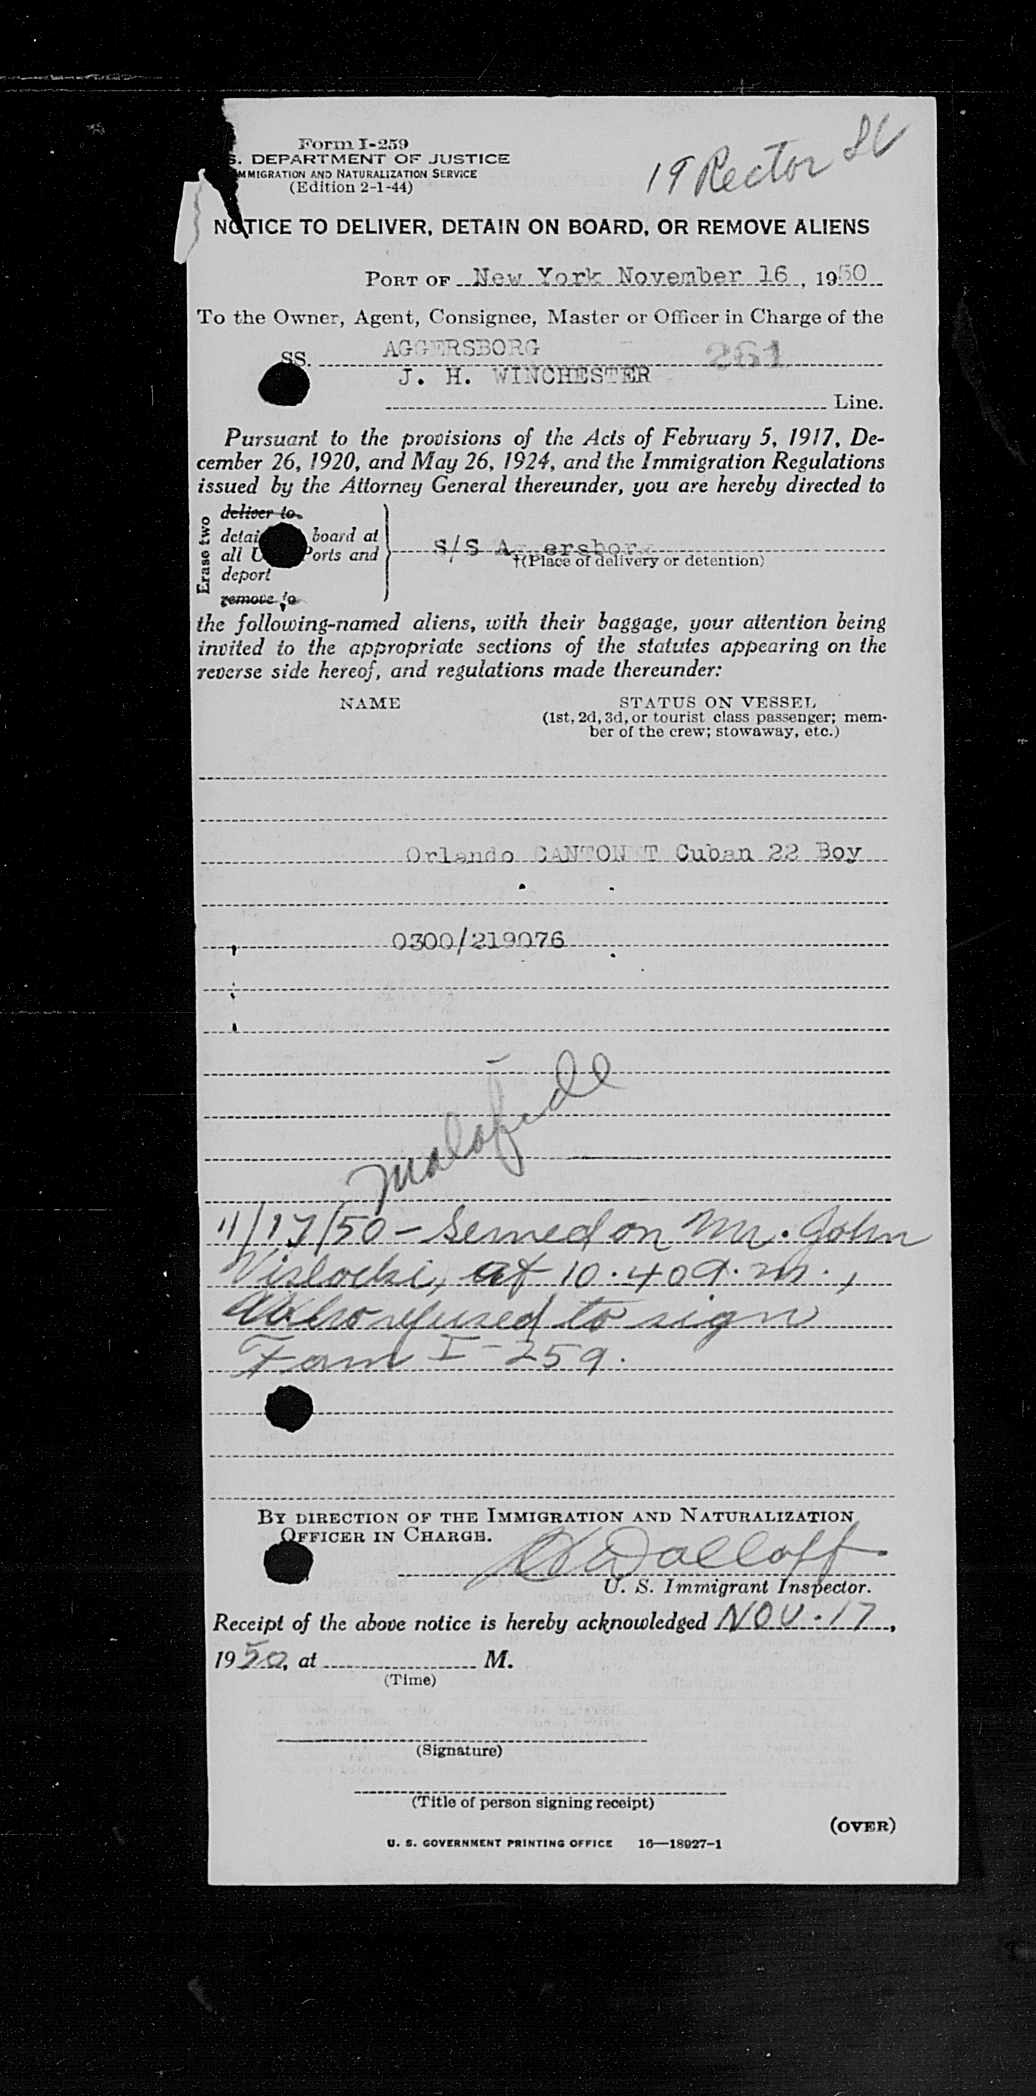 Form I-259
S. DEPARTMENT OF JUSTICE
IMMIGRATION AND NATURALIZATION SERVICE
(Edition 2-1-44)
19 Rector St
NOTICE TO DELIVER, DETAIN ON BOARD, OR REMOVE ALIENS
PORT OF New York November 16, 1950
To the Owner, Agent, Consignee, Master or Officer in Charge of the
SS. AGGERSBORG 261
J. H. WINCHESTER
Line.
Pursuant to the provisions of the Acts of February 5, 1917, De-
cember 26, 1920, and May 26, 1924, and the Immigration Regulations
issued by the Attorney General thereunder, you are hereby directed to
Erase two
deliver to
detai board at
all U Ports and
deport
remove to
S/S Aggersborg
†(Place of delivery or detention)
the following-named aliens, with their baggage, your attention being
invited to the appropriate sections of the statutes appearing on the
reverse side hereof, and regulations made thereunder:
NAME STATUS ON VESSEL
(1st, 2d, 3d, or tourist class passenger; mem-
ber of the crew; stowaway, etc.)
Orlando CANTON T Cuban 22 Boy
0300/219076
malafide
11/17/50 - Served on Mr. John
Vislocki, at 10.40 a.m.,
Who refused to sign
Form I-259.
BY DIRECTION OF THE IMMIGRATION AND NATURALIZATION
OFFICER IN CHARGE.
U. S. Immigrant Inspector.
Receipt of the above notice is hereby acknowledged NOV. 17,
1950, at M.
(Time)
(Signature)
(Title of person signing receipt)
(OVER)
U. S. GOVERNMENT PRINTING OFFICE 16—18927-1